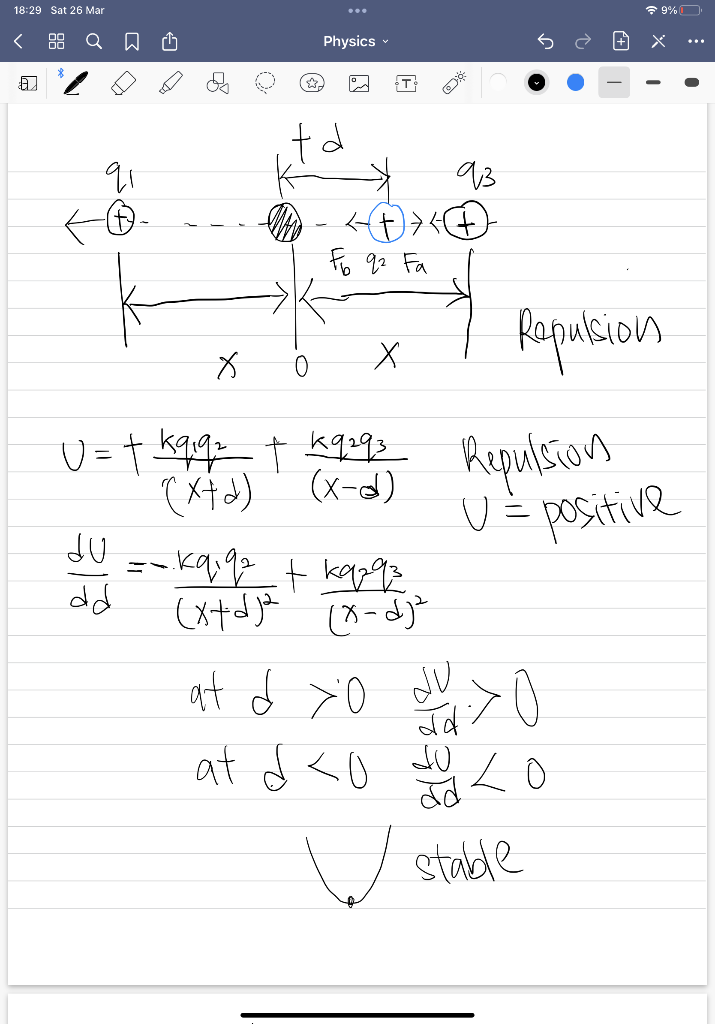 18:29 Sat 26 Mar
9%
Physics
T
+ d
q1 q3
+ + +
Fb q2 Fa
x 0 x
Repulsion
U = + kq1q2/(x+d) + kq2q3/(x-d) Repulsion
U = positive
dU/dd = - kq1q2/(x+d)² + kq2q3/(x-d)²
at d > 0 dU/dd > 0
at d < 0 dU/dd < 0
stable